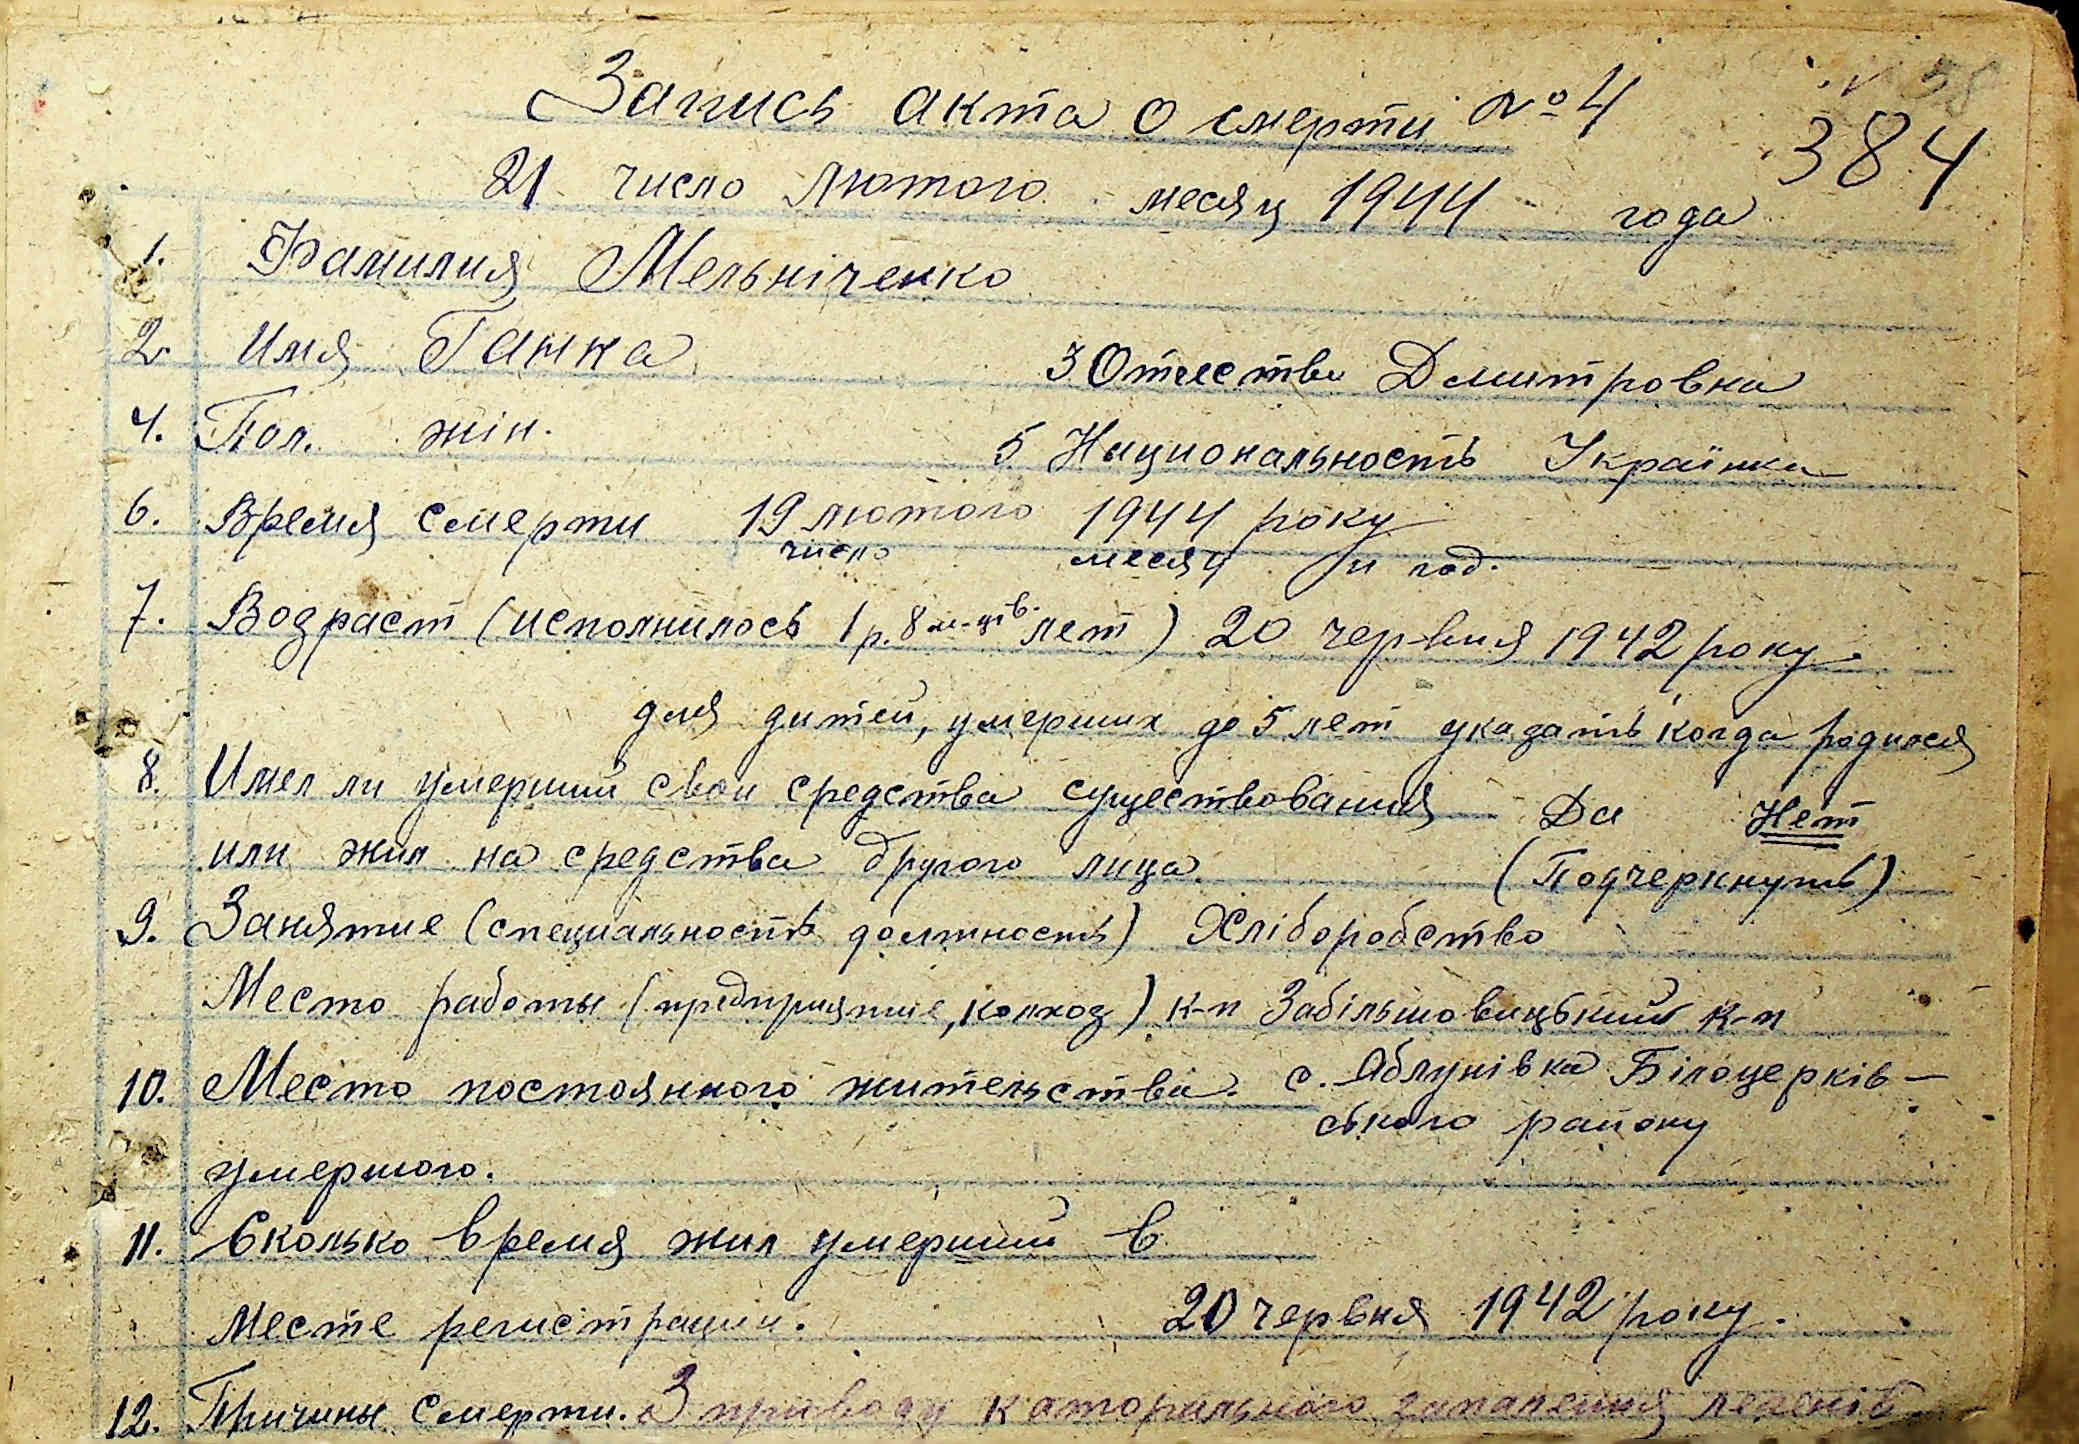 58
384
Запись акта о смерти № 4
21 число лютого месяц 1944 года
1. Фамилия Мельніченко
2. Имя Ганна 3 Отчество Дмитровна
4. Пол. жін. 5 Национальность Українка
6. Время смерти 19 лютого 1944 року
число месяц и год.
7. Возраст (исполнилось 1 р. 8 м-ців. лет) 20 червня 1942 року.
для дитей, умерших до 5 лет указать когда родился
8. Имел ли умерший свои средства существования Да Нет
или жил на средства другого лица. (Подчеркнуть)
9. Занятие (специальность должность) Хліборобство
Место работы (предприятие, колхоз) к-п Забільшовицький к-п
10. Место постоянного жительства. с. Яблунівка Білоцерків-
ського району
умершого.
11. Сколько время жил умерший в
месте регистрации. 20 червня 1942 року.
12. Причины смерти. З приводу каторального запалення легенів